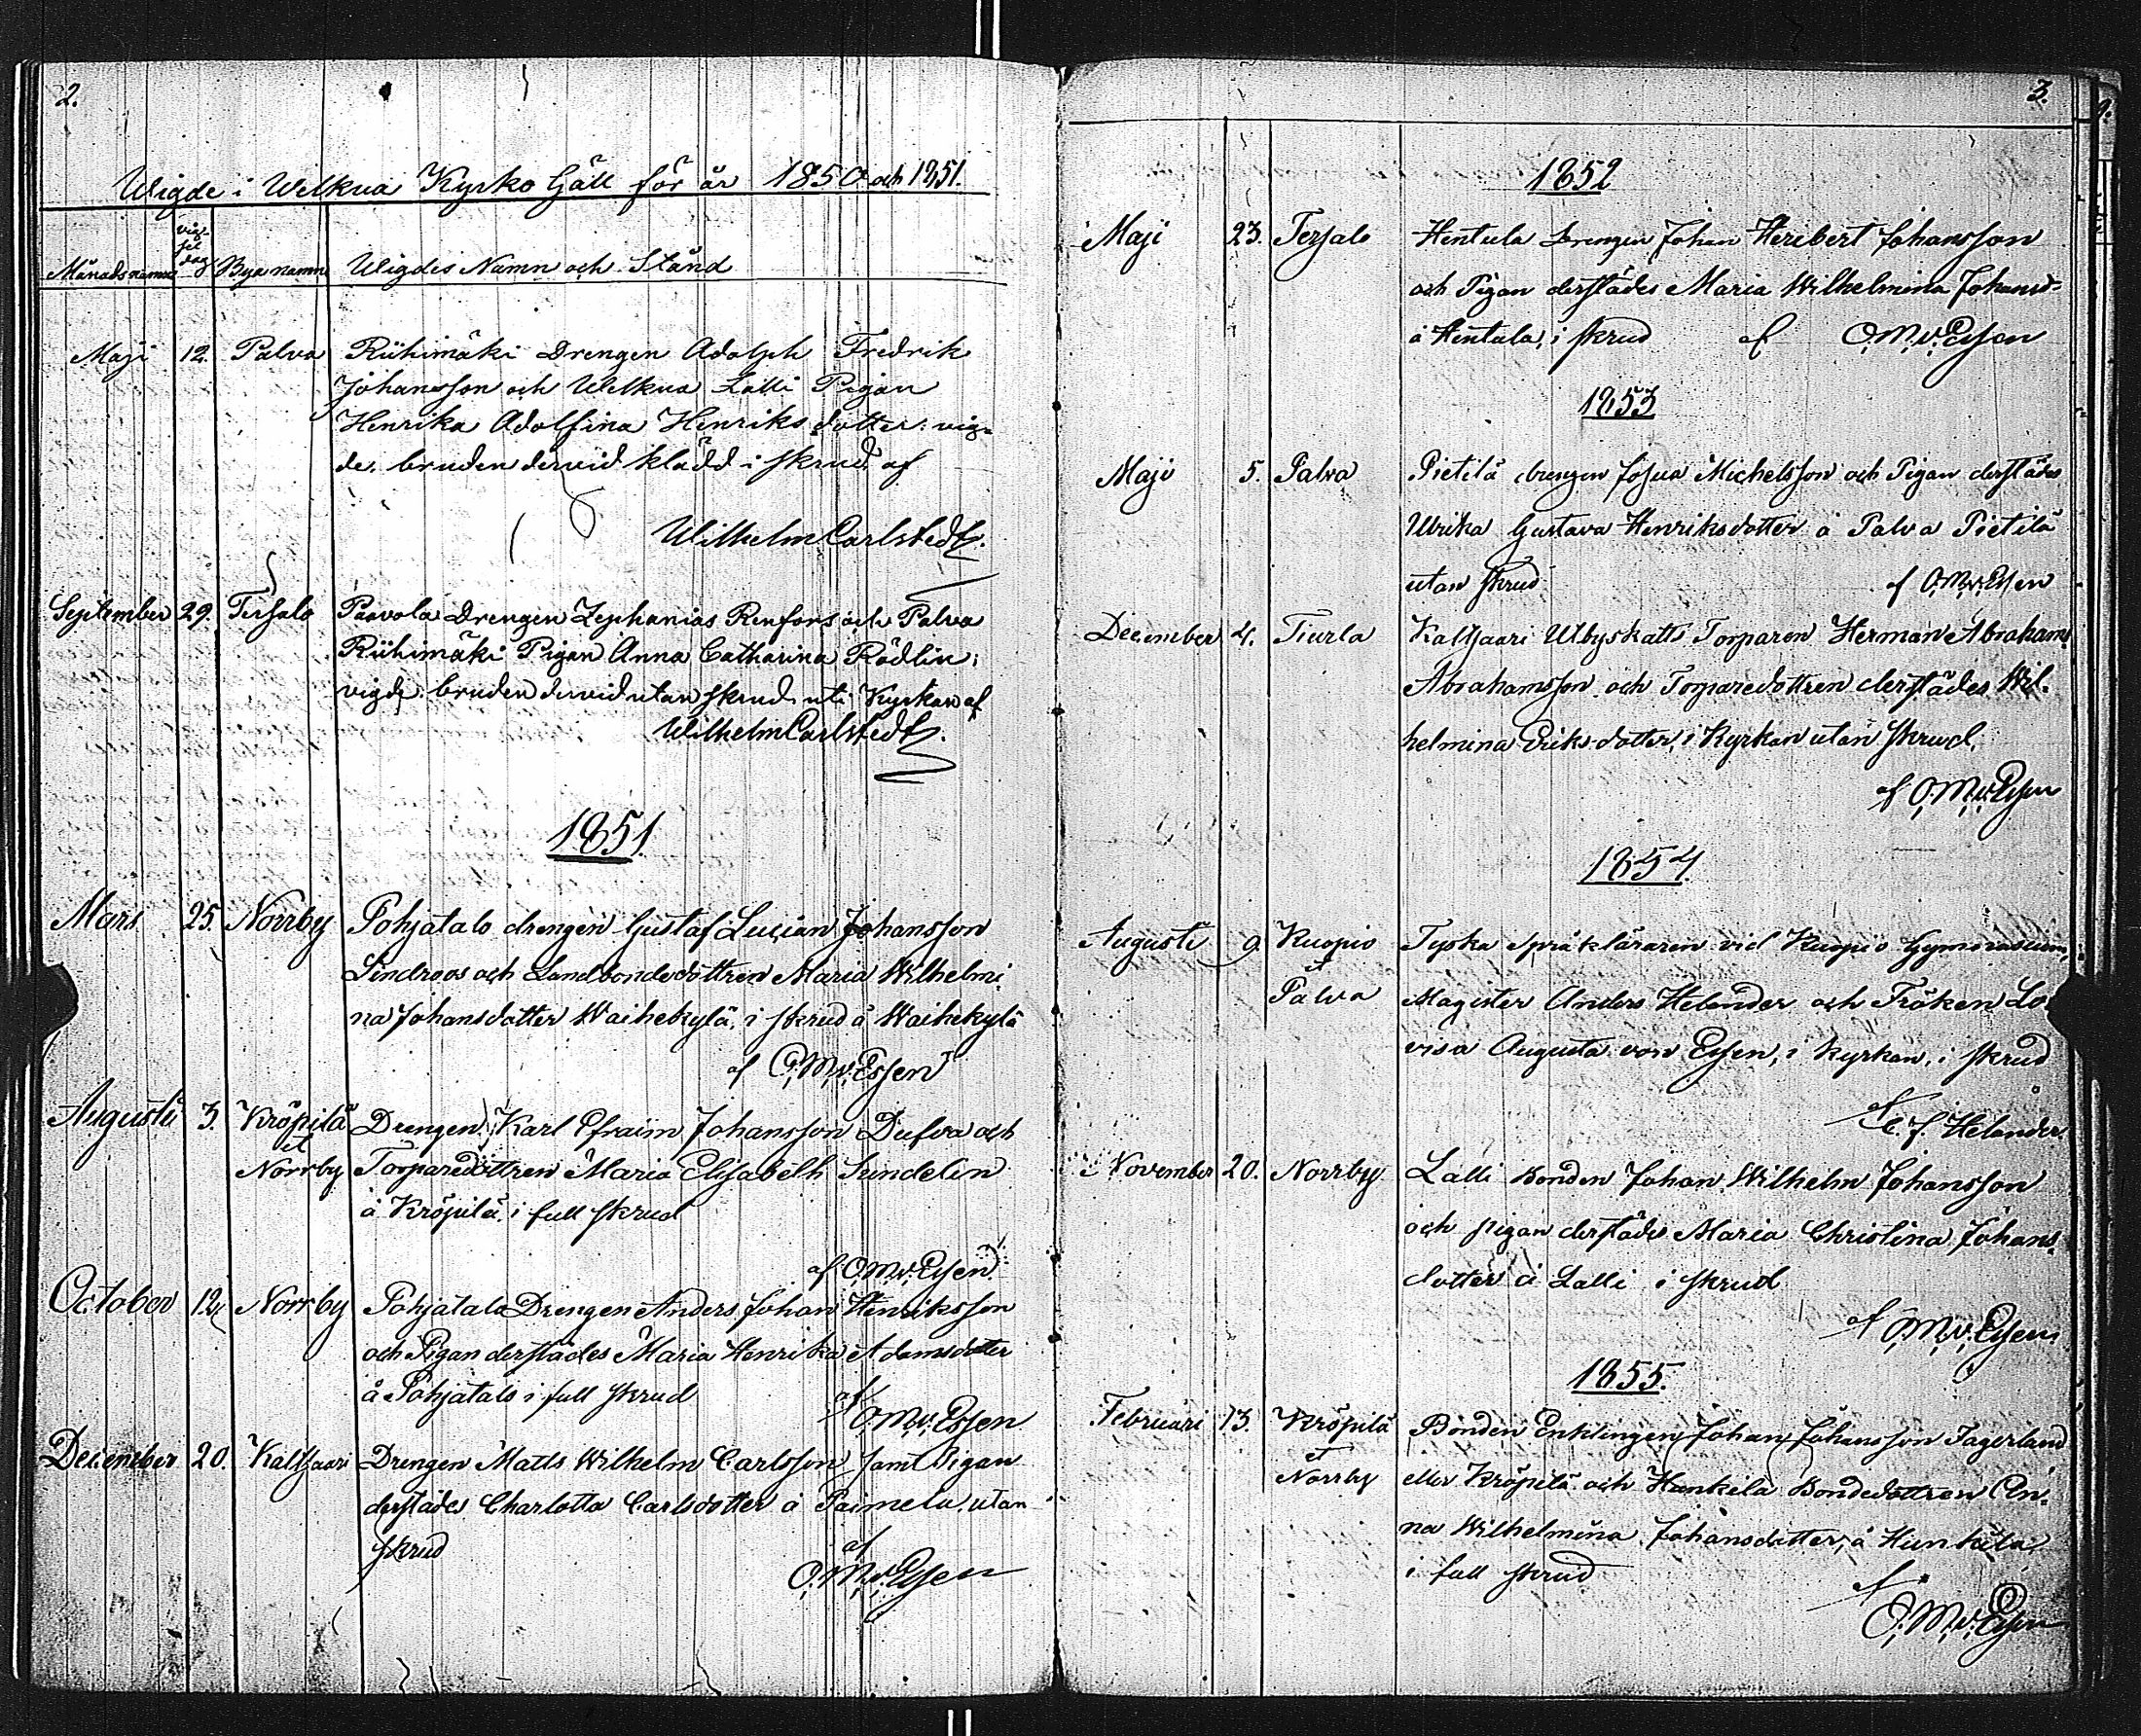 2.
Wigde i Welkua Kyrko Gäll för år 1850 och 1851.
Månads namn vig-sel dag Bya namn Wigdes Namn och Stånd
Maji 12. Palva Riihimäki Drengen Adolph Fredrik
Johansson och Welkua Lalli Pigan
Henrika Adolfina Henriksdotter: vig-
de. bruden dervid klädd i skrud af
Wilhelm Carlstedt.
September 29. Tersalo Paavola Drengen Zephanias Renfors och Palva
Riihimäki Pigan Anna Catharina Rödlin;
vigde. bruden dervid utan skrud uti Kyrkan af
Wilhelm Carlstedt.
1851.
Mars 25. Norrby Pohjatalo drengen Gustaf Lucian Johansson
Lindroos och Landbondedottren Maria Wilhelmi-
na Johansdotter Waihekylä, i skrud å Waihekylä
af O.M.v.Essen
Augusti 3. Kröpilä Drengen Karl Efraim Johansson Dufva och
et
Norrby Torparedottren Maria Elisabeth Sundelin
å Kröpilä, i full skrud
af O.M.v.Essen
October 12. Norrby Pohjatalo Drengen Anders Johan Henriksson
och Pigan derstädes Maria Henrika Adamsdotter
å Pohjatalo i full skrud af
O.M.v.Essen
December 20. Kaitsaari Drengen Matts Wilhelm Carlsson samt Pigan
derstädes Charlotta Carlsdotter å Paimela utan
skrud af
O.M.v.Essen
3.
1852
Maji 23. Tersalo Hentula Drengen Johan Heribert Johansson
och Pigan derstädes Maria Wilhelmina Johansd-
å Hentula, i skrud af O.M.v.Essen
1853
Maji 5. Palva Pietilä drengen Josua Michelsson och Pigan derstädes
Ulrika Gustava Henriksdotter å Palva Pietilä
utan skrud af O.M.v.Essen
December 4. Tiurla Kaitsaari Utbyskatts Torparen Herman Abraham
Abrahamsson och Torparedottren derstädes Wil-
helmina Eriksdotter, i Kyrkan utan skrud,
af O.M.v.Essen
1854.
Augusti 9. Kuopio Tyska Språkläraren vid Kuopio Gymnasium,
et
Palva Magister Anders Helander och Fröken Lo-
visa Augusta von Essen, i Kyrkan, i skrud
af
C. J. Helander
November 20. Norrby Lalli Bonden Johan Wilhelm Johansson
och pigan derstädes Maria Christina Johans-
dotter å Lalli i skrud
af O.M.v.Essen
1855.
Februari 13. Kröpilä Bonden Enklingen Johan Johansson Fagerlund
et
Norrby eller Kröpilä och Hunkila Bondedottren An-
na Wilhelmina Johansdotter, å Hunkila,
i full skrud af
O.M.v.Essen